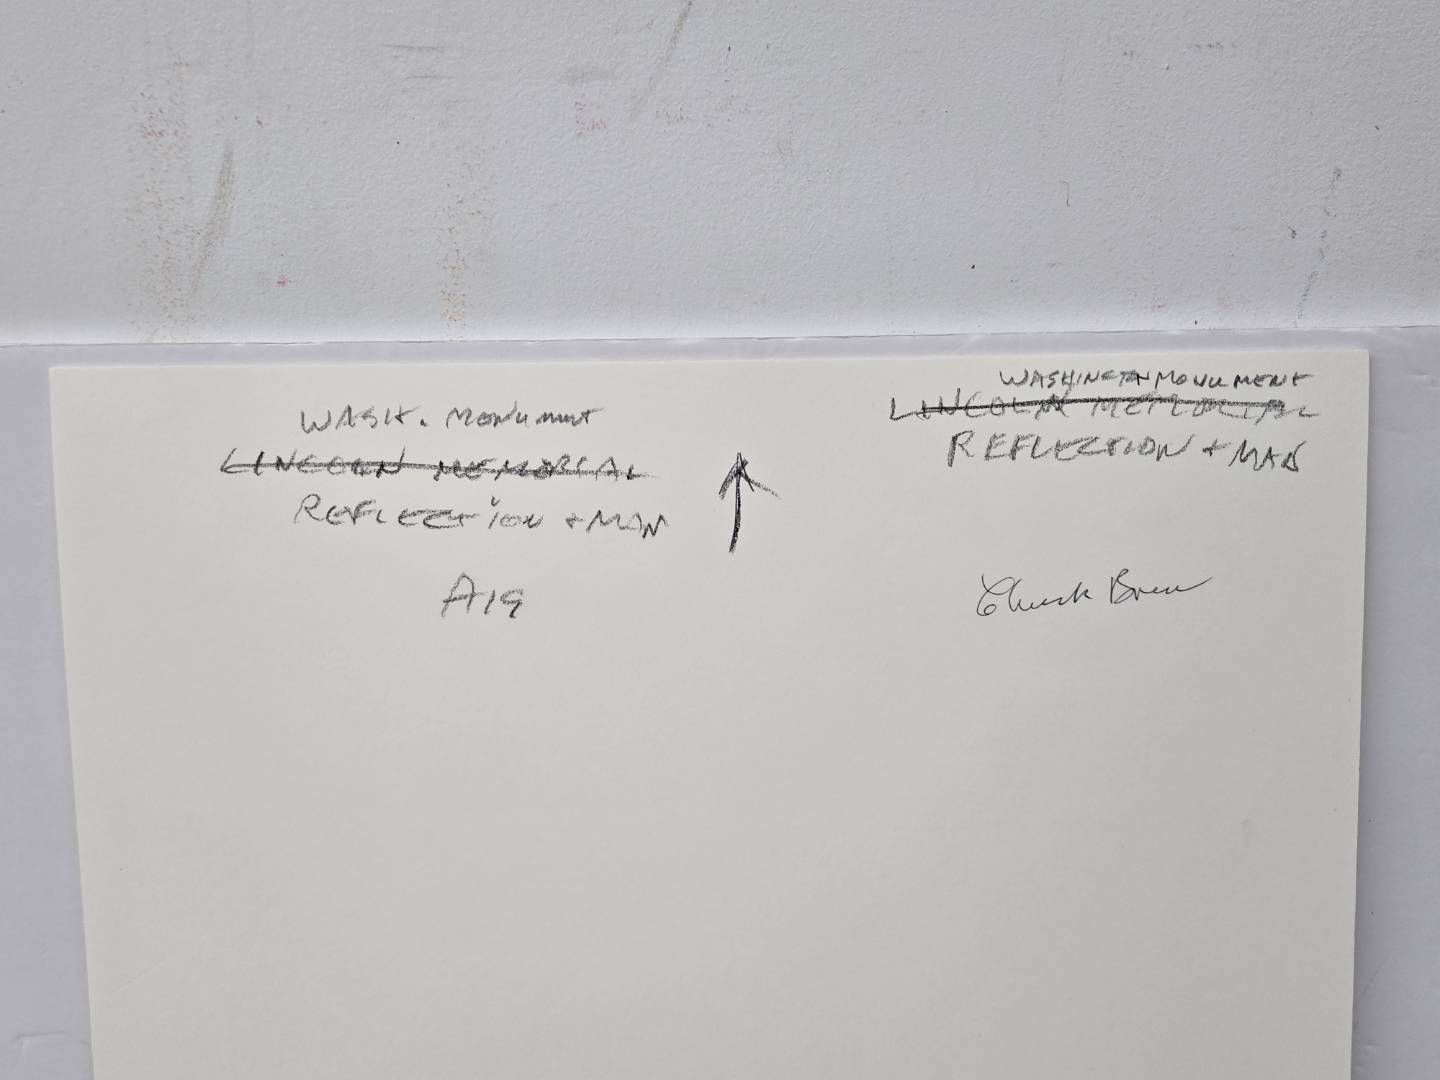 WASH. Monument
LINCOLN MEMORIAL
REFLECTION + MAN
A19
WASHINGTON MONUMENT
LINCOLN MEMORIAL
REFLECTION + MAN
Chuck